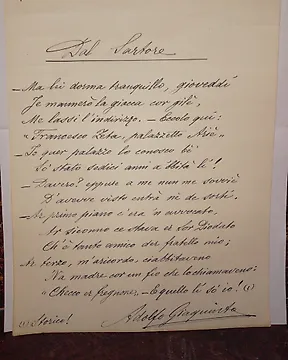 Dal Sartore
— Ma lui dorma tranquillo, gioveddì
Je mannerò la giacca cor gilè,
Me lassi l'indirizzo. — Eccolo qui:
"Francesco Zeta, palazzetto Arsè" —
— Io quer palazzo lo conosco bè
Sò stato sedici anni a 'bità lì!
— Davero? eppure a me nun me sovviè
D'avevve visto entrà nè de sortì,
— Ar primo piano c'era 'n avvocato,
Ar siconno ce stava er Sor Diodato
Ch'è tanto amico der fratello mio;
— Ar terzo, m'aricordo, ciabbitaveno
Na madre cor un fio che lo chiamaveno:
"Checco er fregnone". — E quello lì sò io! (1)
(1) Storico!
Adolfo Giaquinto